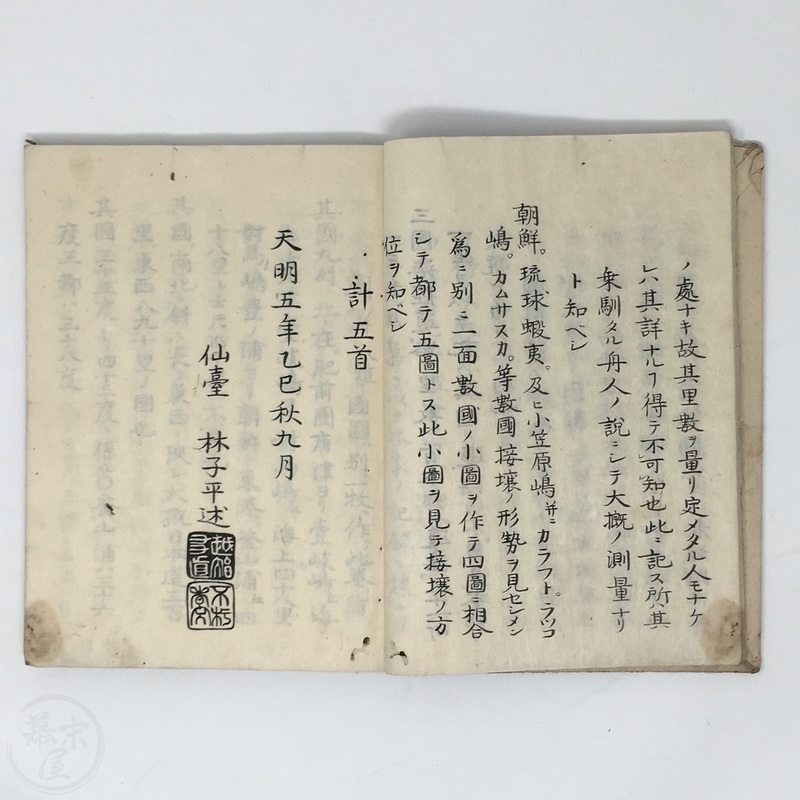 ノ處ナキ故其里數ヲ量リ定メタル人モナケ
レハ其詳ナルヿ得テ不可知也此ニ記ス所ハ其
乗馴タル舟人ノ説ニシテ大概ノ測量ナリ
ト知ベシ
朝鮮。琉球蝦夷。及ヒ小笠原嶋並ニカラフト。ラツコ
嶋。カムサスカ。等數國接壌ノ形勢ヲ見セシメン
為ニ別ニ一面數國ノ小圖ヲ作テ四圖ニ相合
シテ都テ五圖トス此小圖ヲ見テ接壌ノ方
位ヲ知ベシ
計五首
天明五年乙巳秋九月
仙臺 林子平述
幕末屋